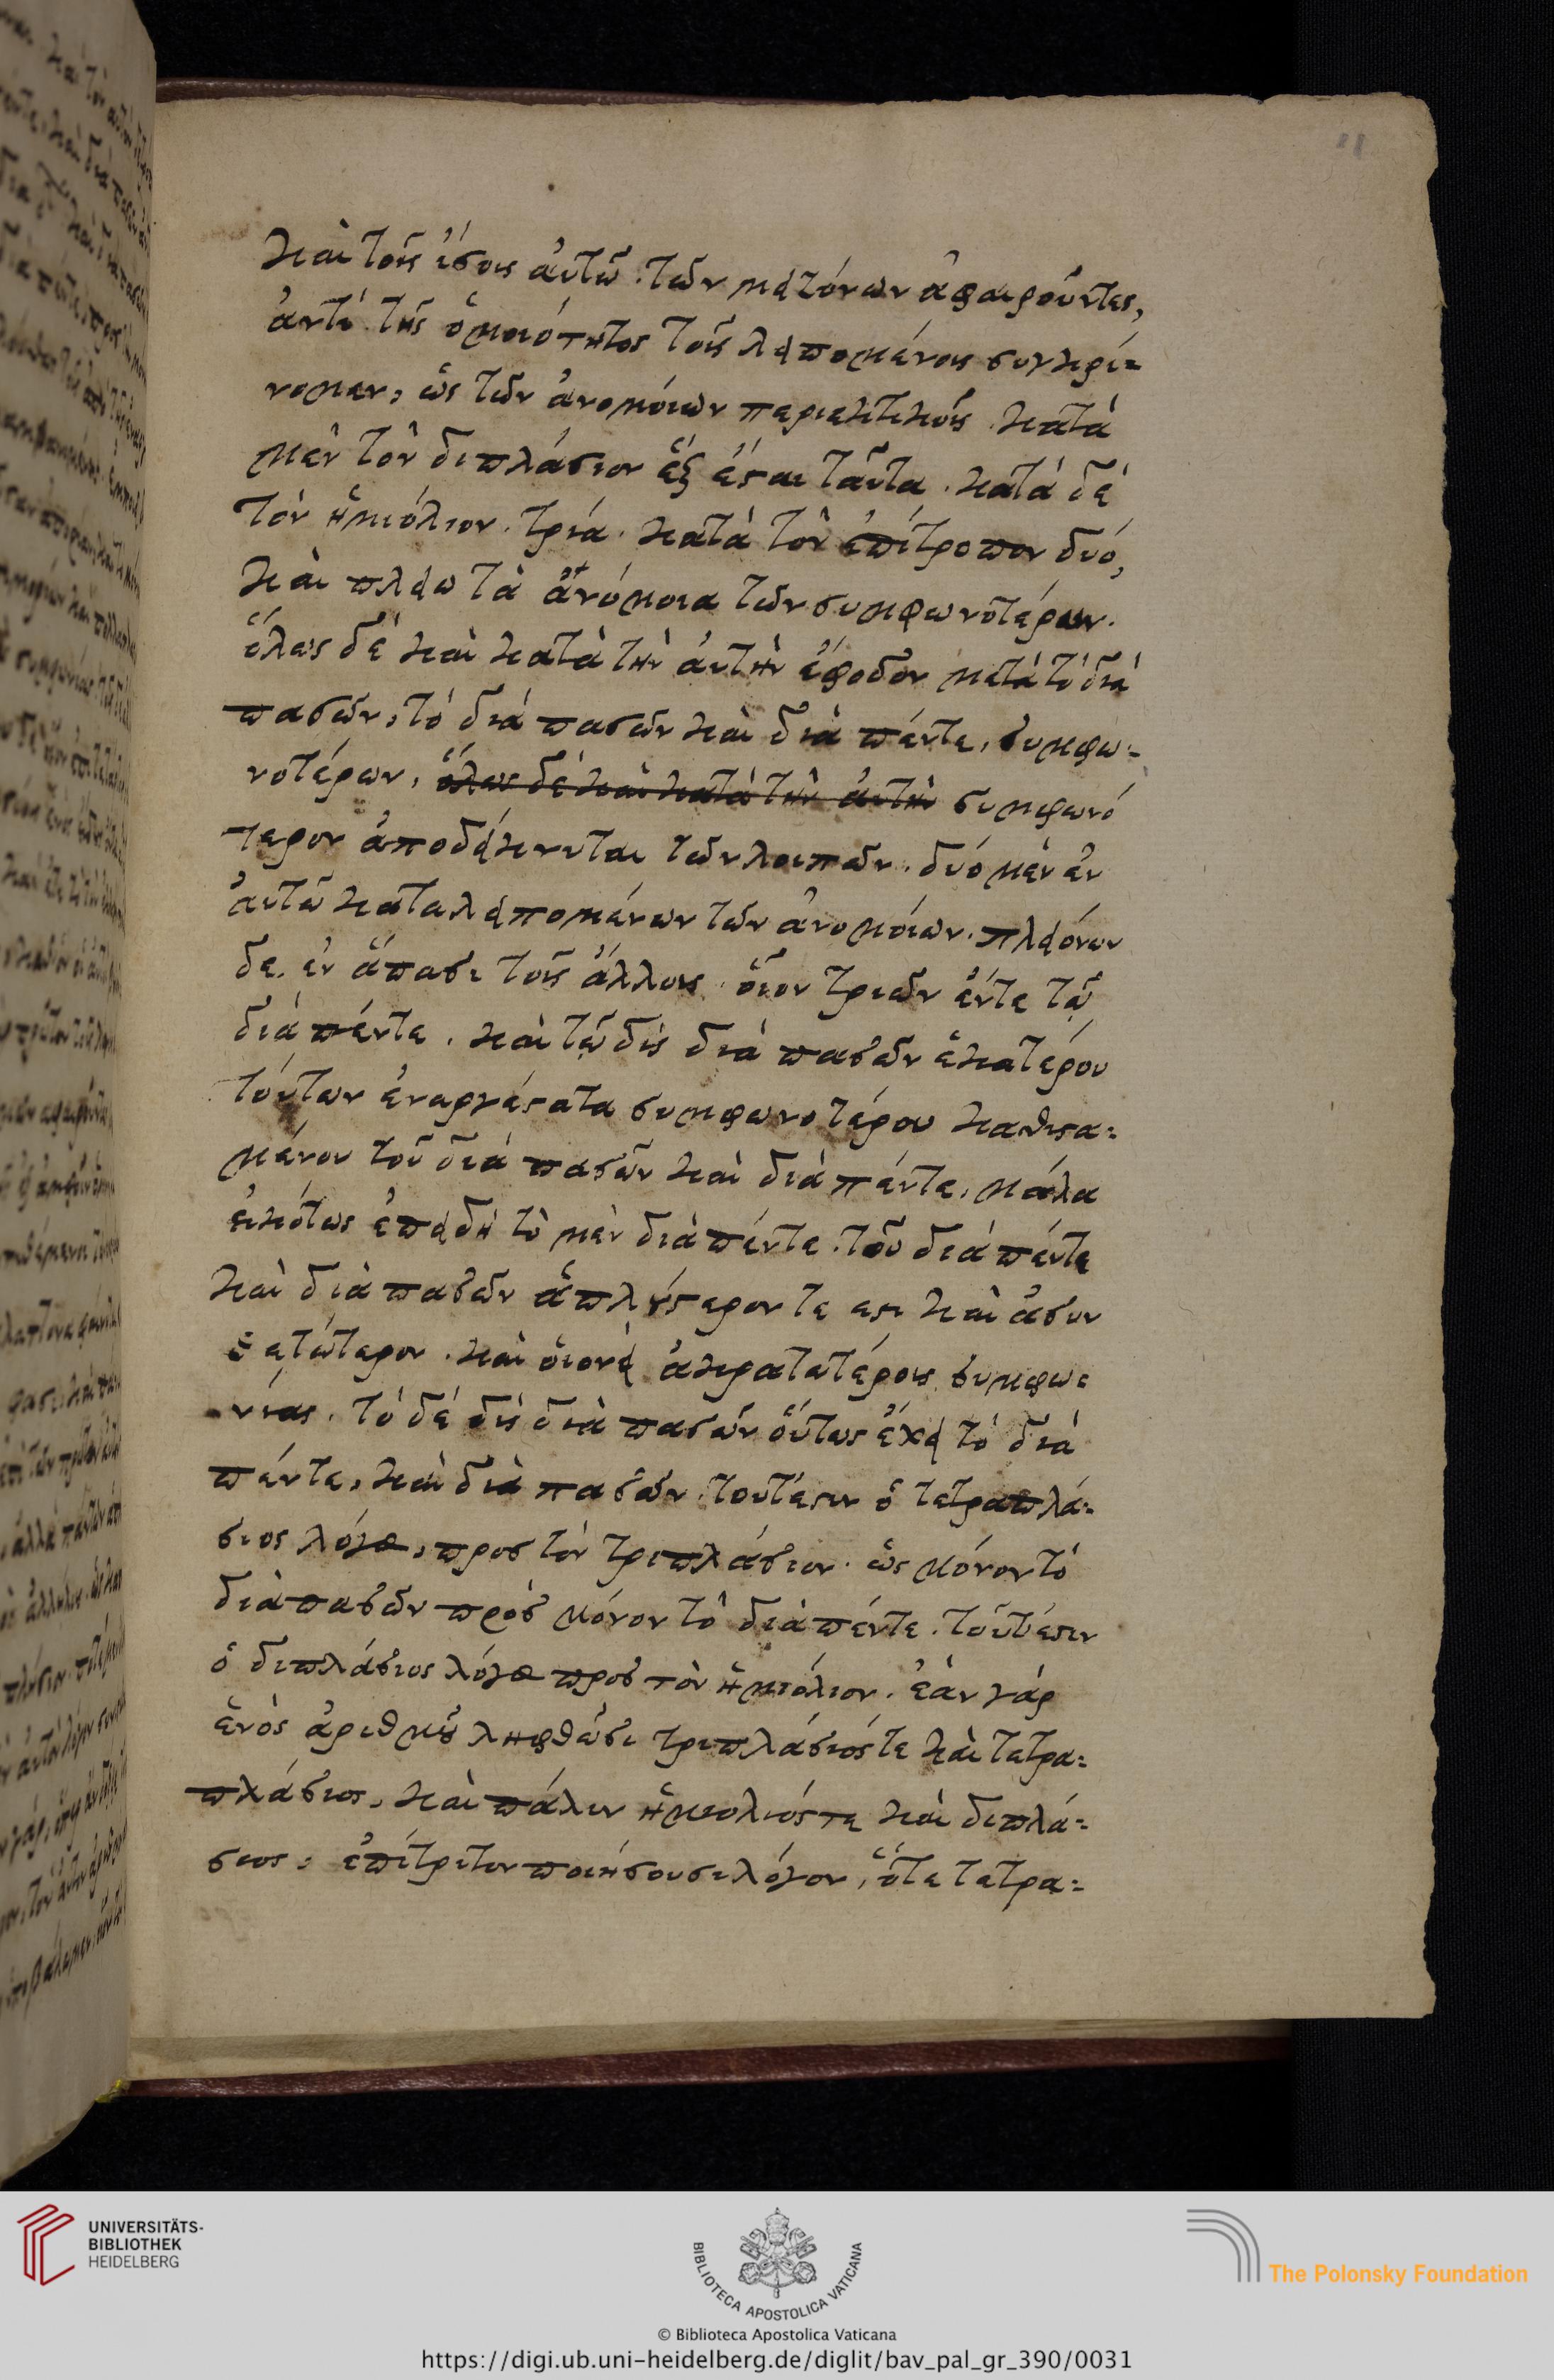 καὶ τοῖς ἴσοις αὐτῶ. τῶν μειζόνων ἀφαιροῦντες,
ἀντὶ τῆς ὁμοιότητος τοῖς λειπομένοις συγκρί=
νομεν, ὡς τῶν ἀνομοίων περιεκτικοῖς. κατὰ
μὲν τὸν διπλάσιον ἕξ ἔσται ταῦτα. κατὰ δὲ
τὸν ἡμιόλιον. τρία. κατὰ τὸν ἐπίτροπον δυό,
καὶ πλείω τὰ ἀνόμοια τῶν συμφωνοτέρων.
ὅλως δὲ καὶ κατὰ τὴν αὐτὴν ἔφοδον μετὰ τὸ διὰ
πασῶν, τὸ διὰ πασῶν καὶ διὰ πέντε, συμφω=
νοτέρων, ὅλως δὲ καὶ κατὰ τὴν αὐτὴν συμφωνό
τερον ἀποδείκνυται τῶν λοιπῶν. δυό μὲν ἐν
αὐτῶ καταλειπομένων τῶν ἀνομοίων. πλειόνων
δε. ἐν ἅπασι τοῖς ἄλλοις. οἷον τριῶν ἔντε τῷ
διὰ πέντε. καὶ τῷ δὶς διὰ πασῶν ἑκατέρου
τούτων ἐναργέστατα συμφωνοτέρου καθιστα=
μένου τοῦ διὰ πασῶν καὶ διὰ πέντε, μάλα
εἰκότως ἐπειδὴ τὸ μὲν διὰ πέντε. τοῦ διὰ πέντε
καὶ διὰ πασῶν ἁπλούστερον τε εστι καὶ ἀσυν
θετώτερον. καὶ οἱονεὶ ἀκρατατέροις συμφω=
νίας. τὸ δὲ δὶς διὰ πασῶν οὕτως ἔχει τὸ διὰ
πέντε, καὶ διὰ πασῶν. τουτέστιν ὁ τετραπλά=
σιος λόγος, προσ τὸν τριπλάσιον. ὡς μόνον τὸ
διὰ πασῶν πρὸς μόνον τὸ διὰ πέντε. τουτέστιν
ὁ διπλάσιος λόγος προσ τὸν ἡμιόλιον. ἐὰν γάρ
ἑνὸς ἀριθμοῦ ληφθῶσι τριπλάσιός τε καὶ τετρα=
πλάσιος, καὶ πάλιν ἡμιολιός τε καὶ διπλά=
σιος, ἐπίτριτον ποιήσουσι λόγον, ὅτε τετρα=
UNIVERSITÄTS-
BIBLIOTHEK
HEIDELBERG
BIBLIOTECA APOSTOLICA VATICANA
The Polonsky Foundation
© Biblioteca Apostolica Vaticana
https://digi.ub.uni-heidelberg.de/diglit/bav_pal_gr_390/0031